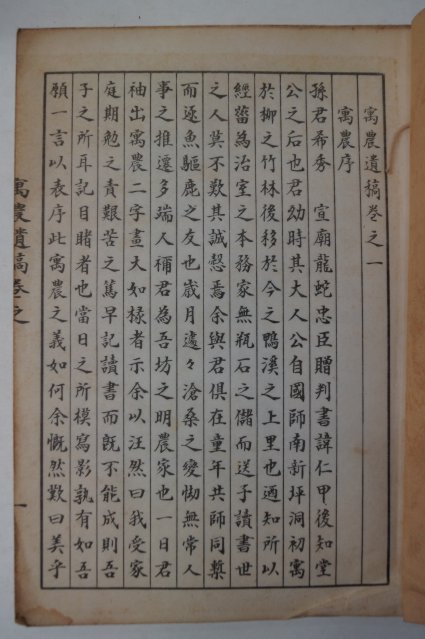 寓農遺稿卷之一
寓農序
孫君希秀 宣廟龍蛇忠臣贈判書諱仁甲後知堂
公之后也君幼時其大人公自國師南新坪洞初寓
於柳之竹林後移於今之鴨溪之上里也迺知所以
經蓄為治室之本務家無瓶石之儲而送子讀書世
之人莫不歎其誠慤焉余與君俱在童年共師同槧
而逐魚驅鹿之友也歲月遽々滄桑之變怮無常人
事之推遷多端人稱君為吾坊之明農家也一日君
袖出寓農二字畫大如椽者示余以汪然曰我受家
庭期勉之責艱苦之篤早記讀書而旣不能成則吾
子之所耳記目睹者也當日之所模寫影孰有如吾
願一言以表序此寓農之義如何余慨然歎曰美乎
寓農遺稿卷之
一